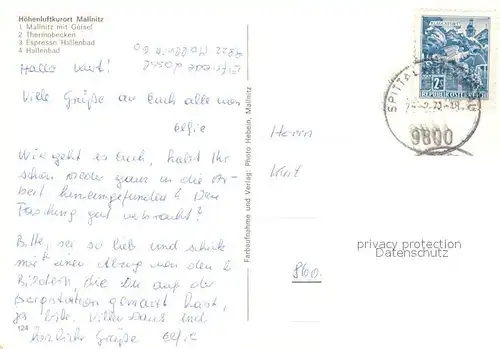 Höhenluftkurort Mallnitz
1 Mallnitz mit Geisel
2 Thermobecken
3 Espresso Hallenbad
4 Hallenbad
9822 Mallnitz 60
Hallo Kurt!
Viele Grüße an Euch alle von
Wie geht es Euch, habt Ihr
schon wieder ganz in die Ar-
beit hineingefunden? Den
Fasching gut verbracht?
Bitte, sei so lieb und schick
mir einen Abzug von den 2
Bildern, die Du auf der
Bergstation gemacht hast,
ja bitte. Vielen Dank und
herzliche Grüße
124
Farbaufnahme und Verlag: Photo Hebein, Mallnitz
Herrn
Kurt
860
2S
REPUBLIK ÖSTERREICH
SPITTAL
9800
privacy protection
Datenschutz